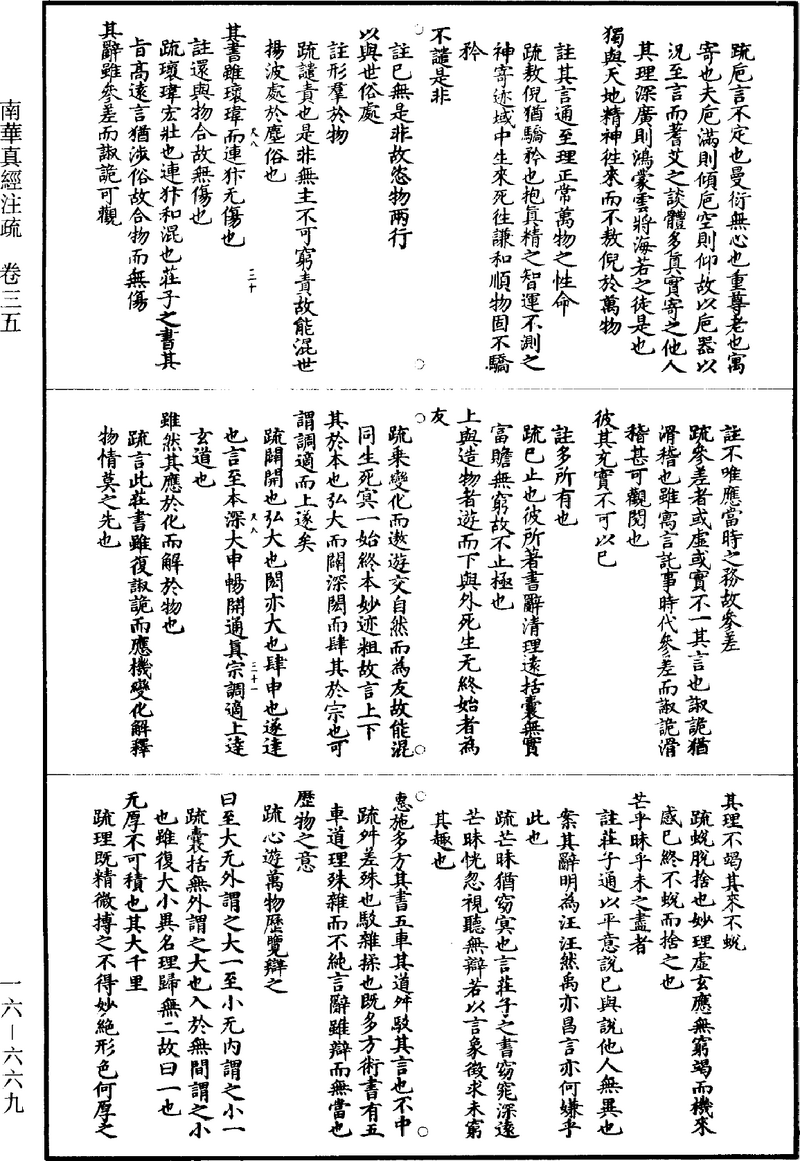 南華真經注疏　卷三五
一六—六六九
疏卮言不定也曼衍無心也重尊老也寓
寄也夫卮滿則傾卮空則仰故以卮器以
況至言而耆艾之談體多真實寄之他人
其理深廣則鴻蒙雲將海若之徒是也
獨與天地精神往來而不敖倪於萬物
註其言通至理正當萬物之性命
疏敖倪猶驕矜也抱真精之智運不測之
神寄迹域中生來死往謙和順物固不驕
矜
不譴是非
註已無是非故恣物兩行
以與世俗處
註形羣於物
疏譴責也是非無主不可窮責故能混世
揚波處於塵俗也
其書雖瓌瑋而連犿无傷也
註還與物合故無傷也
疏瓌瑋宏壯也連犿和混也莊子之書其
旨高遠言猶涉俗故合物而無傷
其辭雖參差而諔詭可觀
註不唯應當時之務故參差
疏參差者或虛或實不一其言也諔詭猶
滑稽也雖寓言託事時代參差而諔詭滑
稽甚可觀閱也
彼其充實不可以已
註多所有也
疏已止也彼所著書辭清理遠括囊無實
富贍無窮故不止極也
上與造物者遊而下與外死生无終始者為
友
疏乘變化而遨遊交自然而為友故能混
同生死冥一始終本妙迹粗故言上下
其於本也弘大而闢深閎而肆其於宗也可
謂調適而上遂矣
疏闢開也弘大也閎亦大也肆申也遂達
也言至本深大申暢開通真宗調適上達
玄道也
雖然其應於化而解於物也
疏言此莊書雖復諔詭而應機變化解釋
物情莫之先也
其理不竭其來不蛻
疏蛻脫捨也妙理虛玄應無窮竭而機來
感已終不蛻而捨之也
芒乎昧乎未之盡者
註莊子通以平意說已與說他人無異也
案其辭明為汪汪然禹亦昌言亦何嫌乎
此也
疏芒昧猶窈冥也言莊子之書窈窕深遠
芒昧恍忽視聽無辯若以言象徵求未窮
其趣也
惠施多方其書五車其道舛駮其言也不中
疏舛差殊也駮雜揉也既多方術書有五
車道理殊雜而不純言辭雖辯而無當也
歷物之意
疏心遊萬物歷覽辯之
曰至大无外謂之大一至小无內謂之小一
疏囊括無外謂之大也入於無間謂之小
也雖復大小異名理歸無二故曰一也
无厚不可積也其大千里
疏理既精微摶之不得妙絕形色何厚之